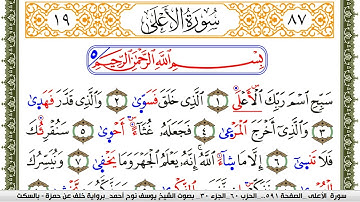 ١٩ سُورَةُ الأَعْلَىٰ ٨٧
بِسْمِ اللَّهِ الرَّحْمَٰنِ الرَّحِيمِ
سَبِّحِ اسْمَ رَبِّكَ الْأَعْلَى ١ الَّذِي خَلَقَ فَسَوَّىٰ ٢ وَالَّذِي قَدَّرَ فَهَدَىٰ
٣ وَالَّذِي أَخْرَجَ الْمَرْعَىٰ ٤ فَجَعَلَهُ غُثَاءً أَحْوَىٰ ٥ سَنُقْرِئُكَ
فَلَا تَنسَىٰ ٦ إِلَّا مَا شَاءَ اللَّهُ إِنَّهُ يَعْلَمُ الْجَهْرَ وَمَا يَخْفَىٰ ٧ وَنُيَسِّرُكَ
سورة الأعلى . الصفحة ٥٩١ . الحزب ٦٠ . الجزء ٣٠ . بصوت الشيخ يوسف نوح أحمد . برواية خلف عن حمزة - بالسكت